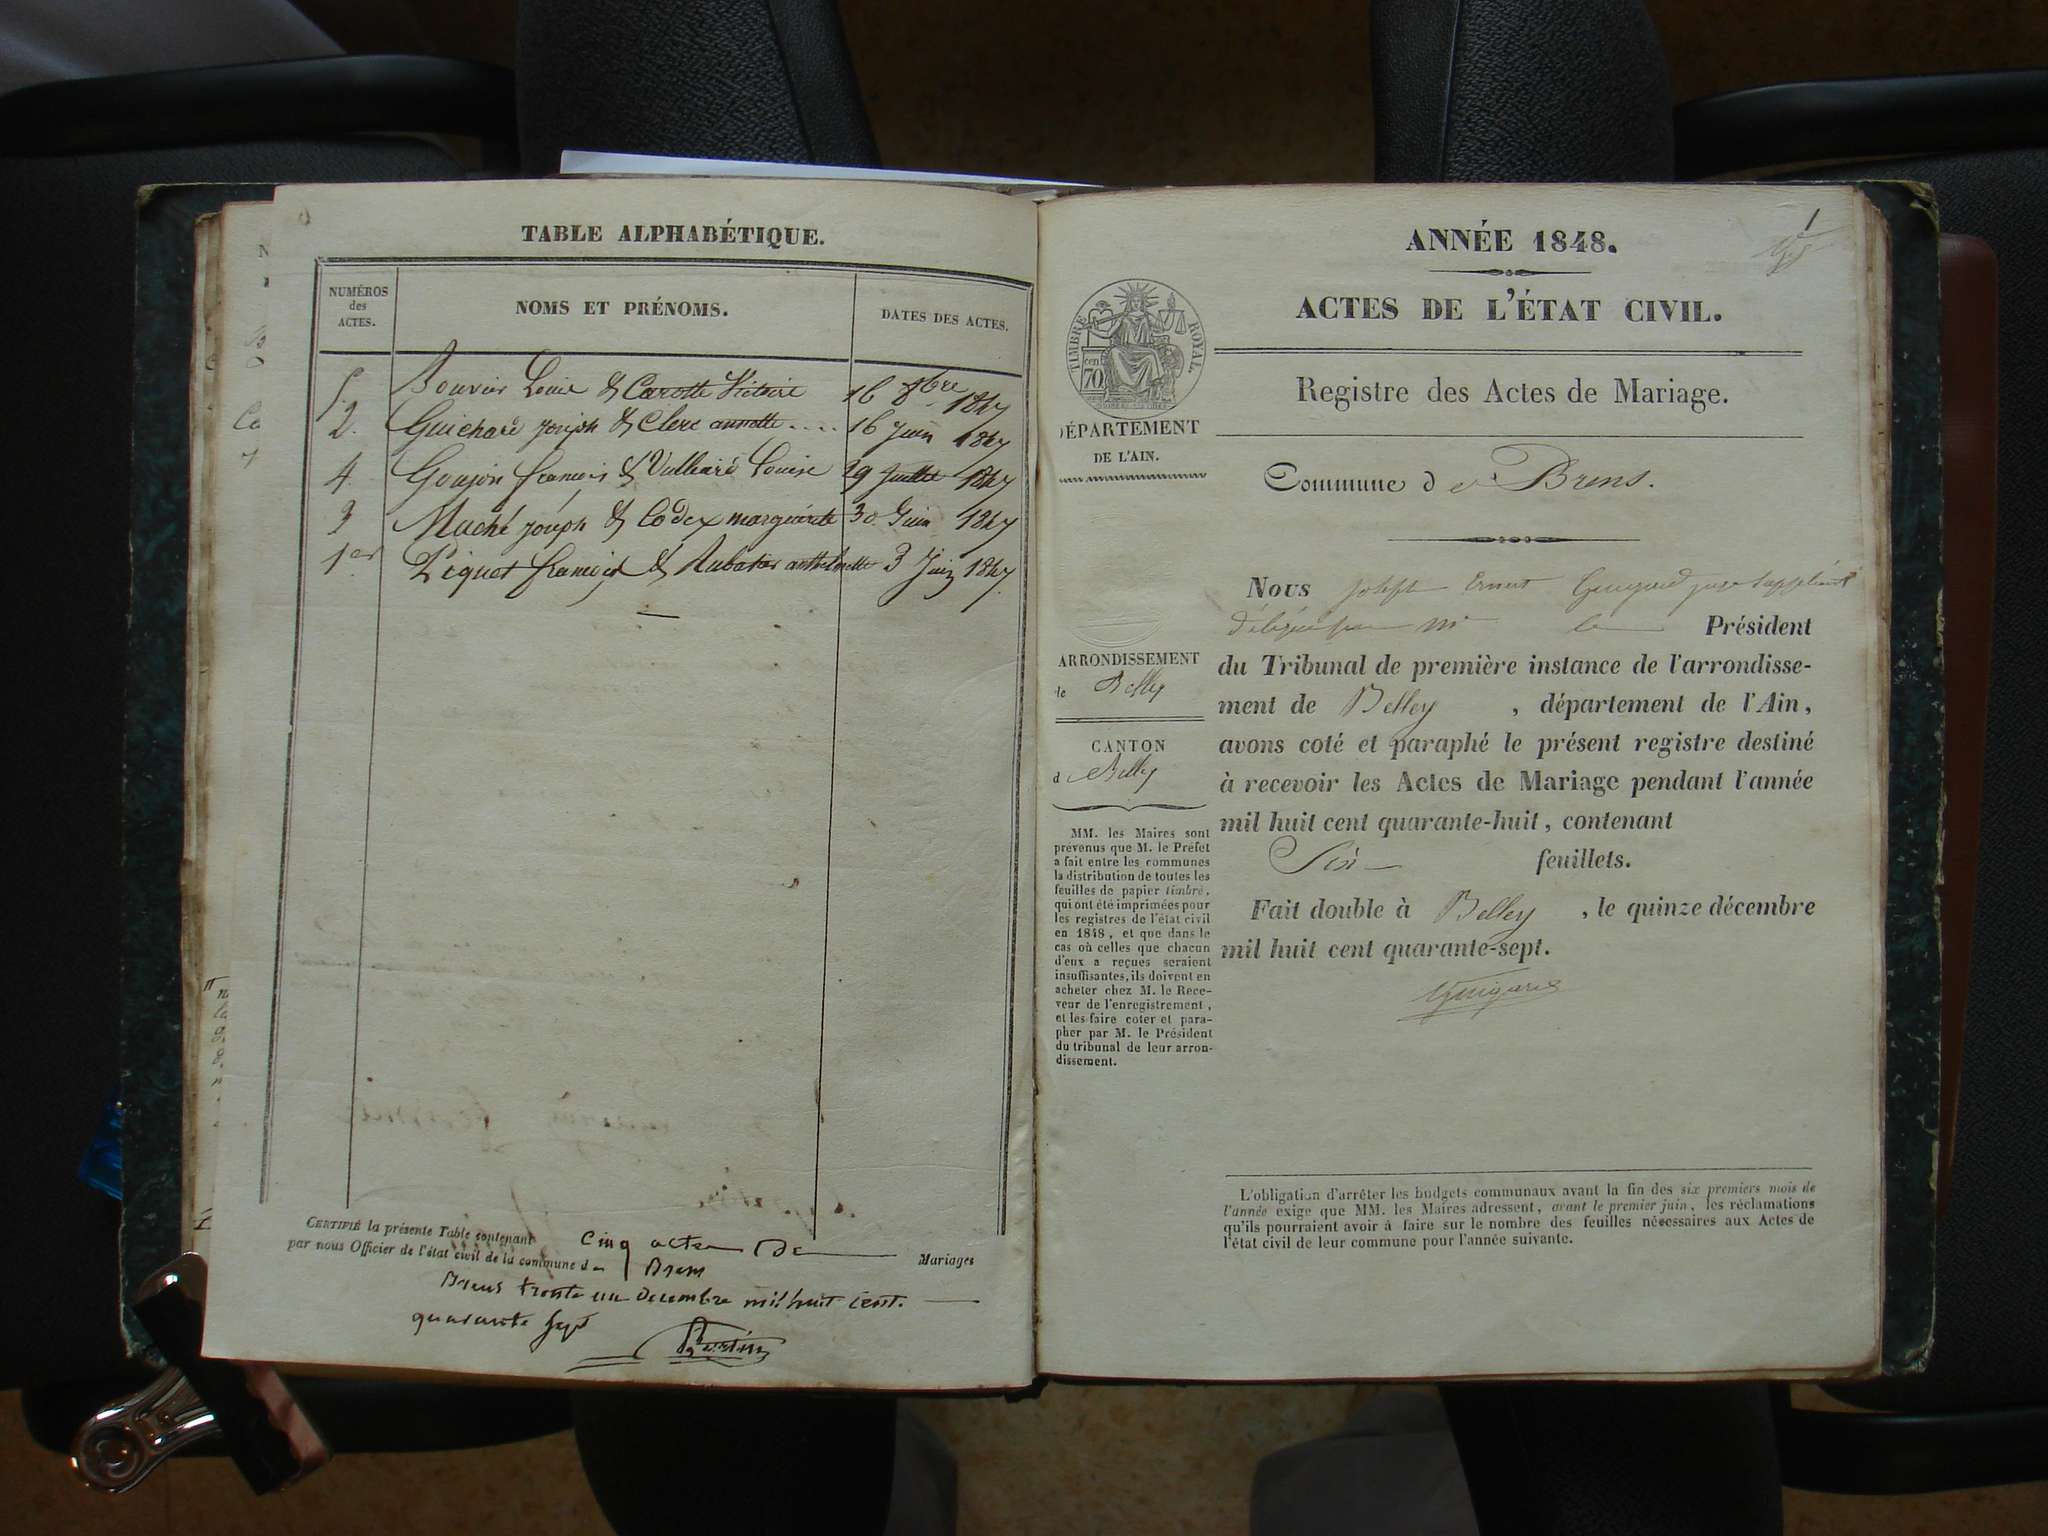 TABLE ALPHABÉTIQUE.
NUMÉROS
des
ACTES.
NOMS ET PRÉNOMS.
DATES DES ACTES.
5. Bouvier Louis & Carotte Victoire 16 8bre 1847
2. Guichard joseph & Clerc annette .... 16 Juin 1847
4. Goujon françois & Vulliard Louise 29 Juillet 1847
3 Maché joseph & Codex marguerite 30 Juin 1847
1er Piquet françois & anthelmette 3 Juin 1847
CERTIFIÉ la présente Table contenant cinq actes de Mariages
par nous Officier de l'état civil de la commune de Brens
Brens trente un decembre mil huit cent
quarante sept
1
ANNÉE 1848.
ACTES DE L'ÉTAT CIVIL.
Registre des Actes de Mariage.
TIMBRE ROYAL
cent
70
DÉPARTEMENT
DE L'AIN.
Commune de Brens.
Nous Joseph Ernest Guigard juge suppléant
délégué par Mr le Président
du Tribunal de première instance de l'arrondisse-
ment de Belley, département de l'Ain,
avons coté et paraphé le présent registre destiné
à recevoir les Actes de Mariage pendant l'année
mil huit cent quarante-huit, contenant
Six feuillets.
Fait double à Belley, le quinze décembre
mil huit cent quarante-sept.
Guigard
ARRONDISSEMENT
de Belley
CANTON
d Belley
MM. les Maires sont
prévenus que M. le Préfet
a fait entre les communes
la distribution de toutes les
feuilles de papier timbré,
qui ont été imprimées pour
les registres de l'état civil
en 1848, et que dans le
cas où celles que chacun
d'eux a reçues seraient
insuffisantes, ils doivent en
acheter chez M. le Rece-
veur de l'enregistrement,
et les faire coter et para-
pher par M. le Président
du tribunal de leur arron-
dissement.
L'obligation d'arrêter les budgets communaux avant la fin des six premiers mois de
l'année exige que MM. les Maires adressent, avant le premier juin, les réclamations
qu'ils pourraient avoir à faire sur le nombre des feuilles nécessaires aux Actes de
l'état civil de leur commune pour l'année suivante.